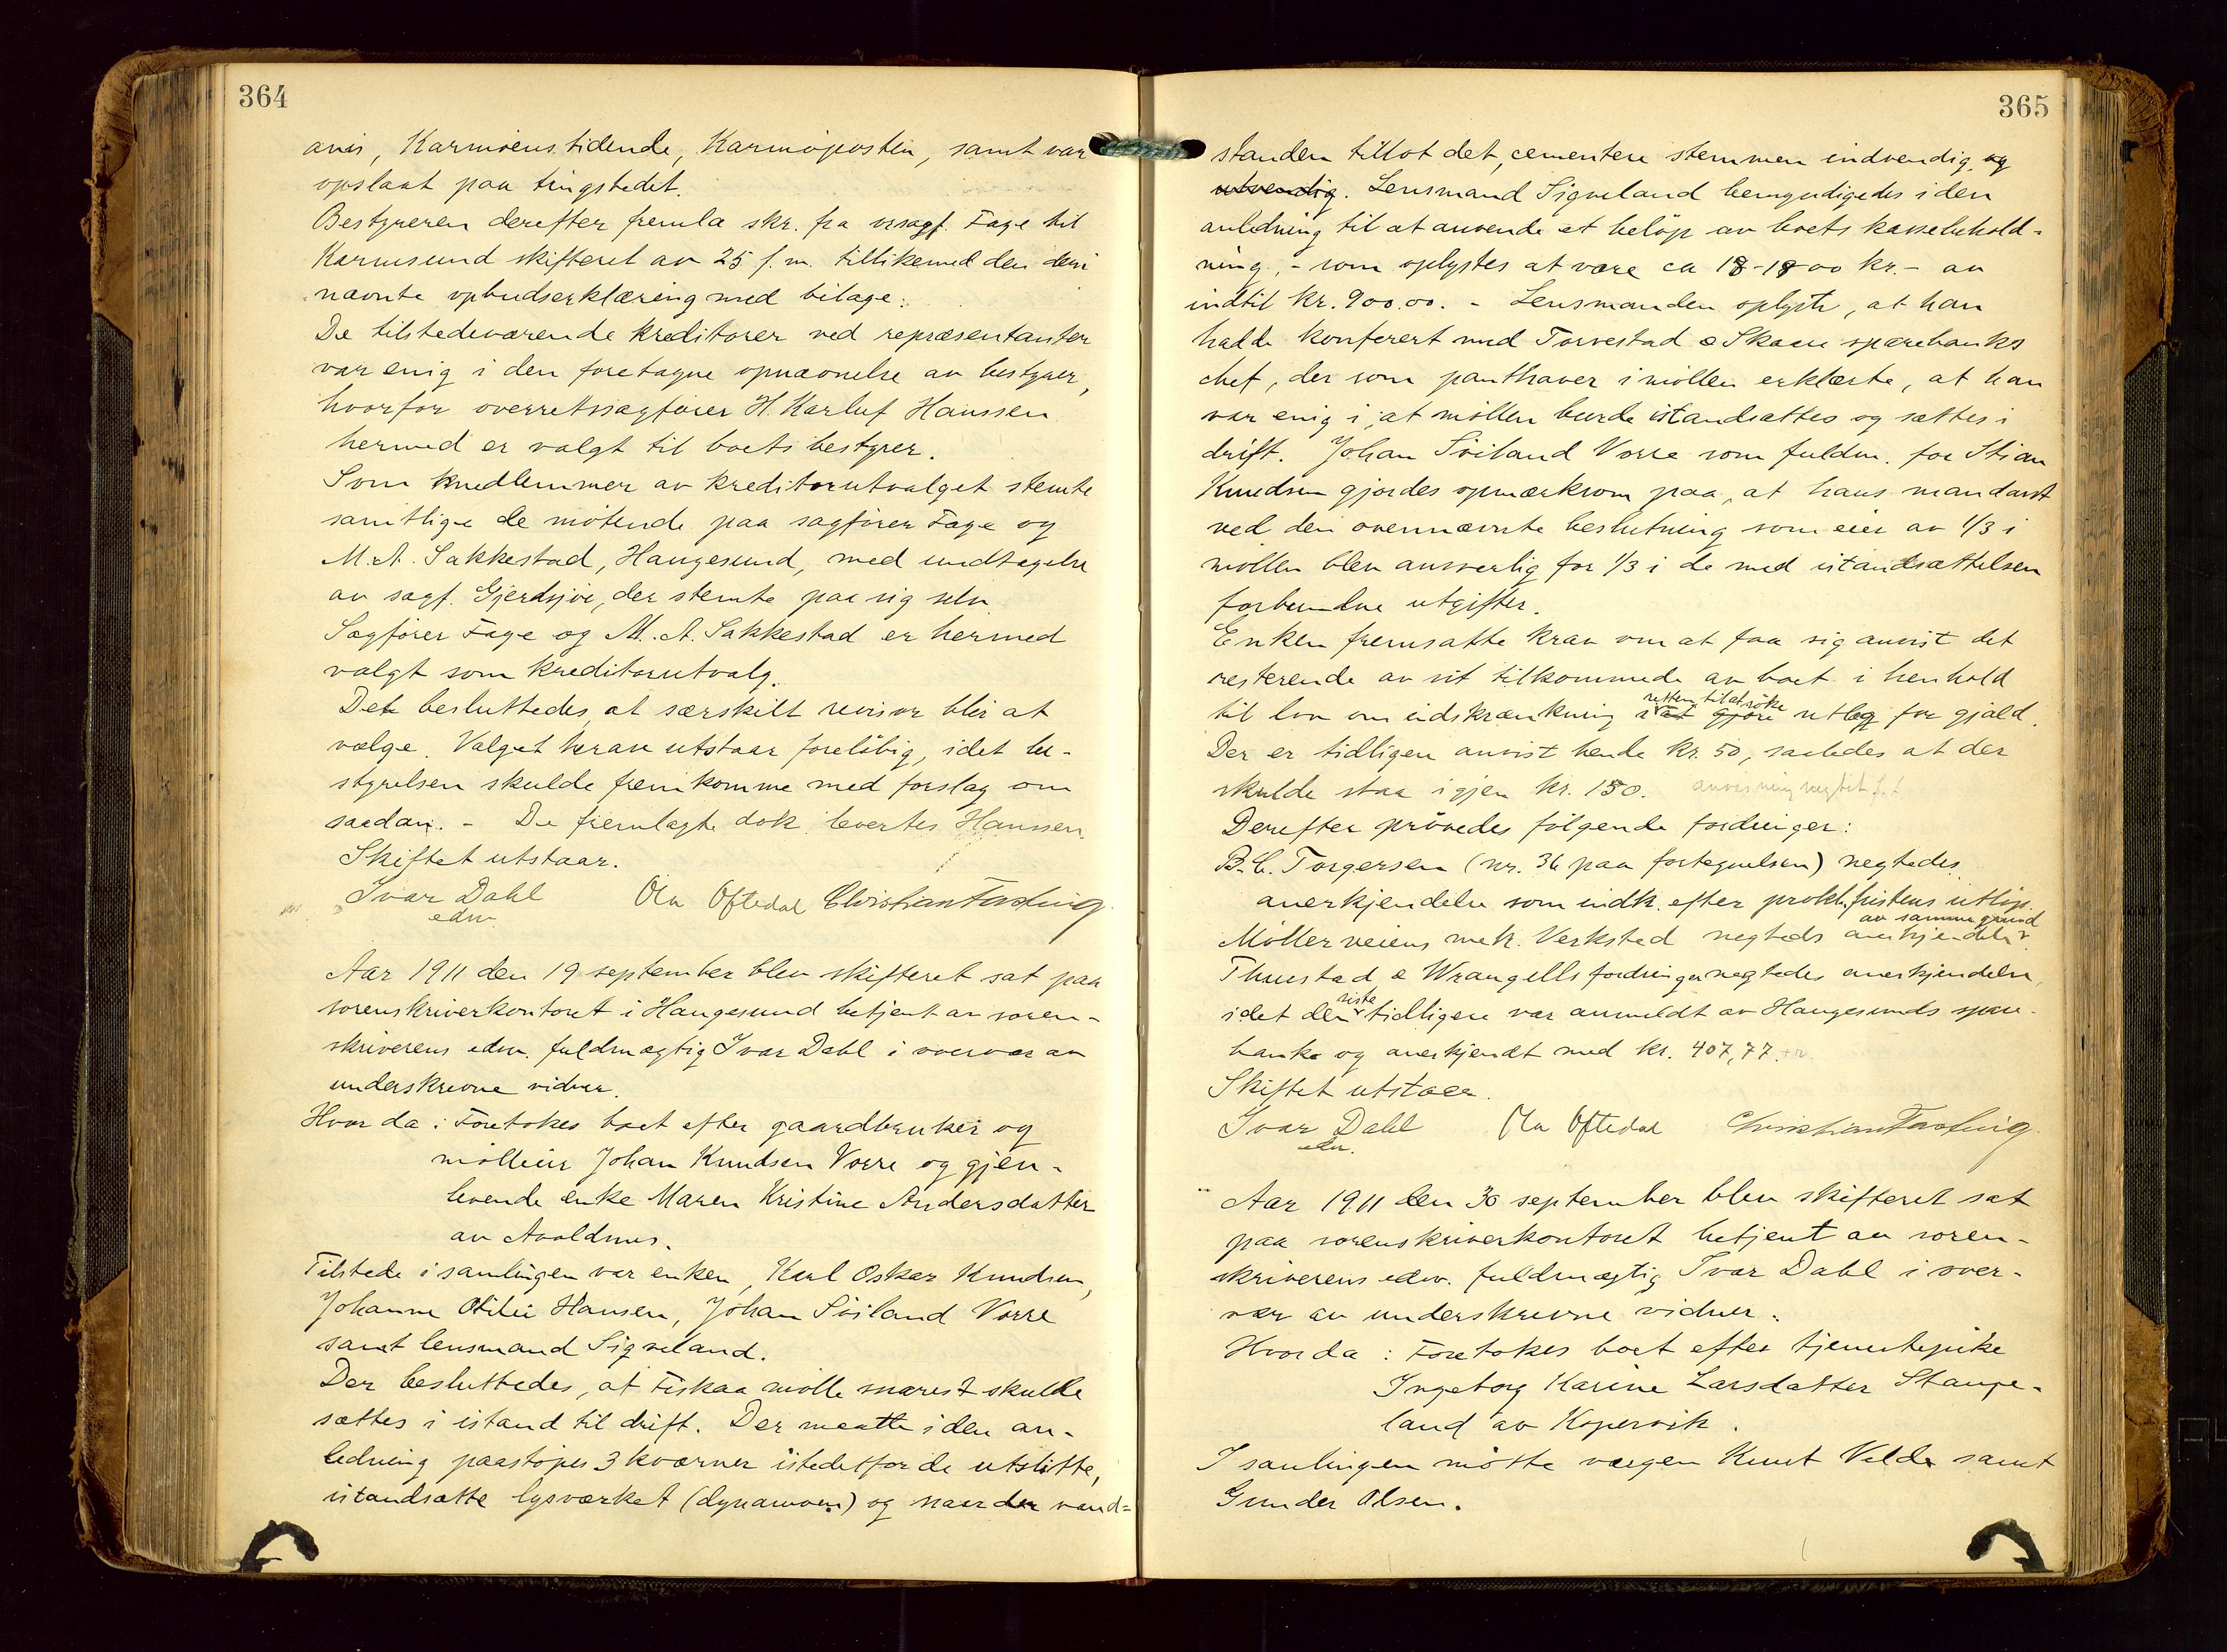 364
avis, Karmöens tidende, Karmöposten, samt var
opslaat paa tingstedet.
Bestyreren derefter fremla skr. fra orsagf. Fage til
Karmsund skifteret av 25 f. m. tillikemed den deri
nævnte opbudserklæring med bilage:
De tilstedeværende kreditorer ved repræsentanter
var enig i den foretagne opnævnelse av bestyrer,
hvorfor overretssagfører H. Karluf Hanssen
hermed er valgt til boets bestyrer.
Som medlemmer av kreditorutvalget stemte
samtlige de møtende paa sagfører Fage og
M. A. Sakkestad, Haugesund, med undtagelse
av sagf. Gjerdsjöe, der stemte paa sig selv.
Sagfører Fage og M. A. Sakkestad er hermed
valgt som kreditorutvalg.
Det besluttedes, at særskilt revisor blir at
vælge. Valget herav utstaar foreløbig, idet be-
styrelsen skulde fremkomme med forslag om
saadan. - De fremlagte dok. levertes Hanssen.
Skiftet utstaar.
Ivar Dahl Ola Oftedal Christian Fasting
edsv.
Aar 1911 den 19 september blev skifteret sat paa
sorenskriverkontoret i Haugesund betjent av soren-
skriverens edsv. fuldmægtig Ivar Dahl i overvær av
underskrevne vidner.
Hvor da: Foretokes boet efter gaardbruker og
mølleier Johan Knudsen Vorre og gjen-
levende enke Maren Kristine Andersdatter
av Avaldsnes.
Tilstede i samlingen var enken, Karl Oskar Knudsen,
Johanne Otilie Hansen, Johan Söiland Vorre
samt lensmand Sigveland.
Der besluttedes, at Fiskaa mølle snarest skulde
sættes i istand til drift. Der maatte i den an-
ledning paastøpes 3 kværner istedetfor de utslitte,
istandsætte lysværket (dynamoen) og naar der vand-
365
standen tillot det, cementere stemmen indvendig og
utvendig. Lensmand Sigveland bemyndigedes i den
anledning til at anvende et beløp av boets kassebehold-
ning, - som oplystes at være ca 18-1900 kr. - av
indtil kr. 900.00. - Lensmanden oplyste, at han
hadde konferert med Torvestad & Skaare sparebanks
chef, der som panthaver i møllen erklærte, at han
var enig i, at møllen burde istandsættes og sættes i
drift. Johan Söiland Vorre som fuldm. for Stian
Knudsen gjordes opmærksom paa, at hans mandant
ved den ovennævnte beslutning som eier av 1/3 i
møllen blev ansvarlig for 1/3 i de med istandsættelsen
forbundne utgifter.
Enken fremsatte krav om at faa sig anvist det
resterende av sit tilkommende av boet i henhold
til lov om indskrænkning i retten til at søke at gjøre utlæg for gjæld.
Der er tidligere anvist hende kr. 50, saaledes at der
skulde staa igjen kr. 150. anvisning negtet
Derefter prøvedes følgende fordringer:
B. C. Torgersen (nr. 36 paa fortegnelsen) negtedes
anerkjendelse som indk. efter prokl.fristens utløp.
Møllerveiens mek. Verksted negteds anerkjendelse av samme grund.
Thuestad & Wrangells fordringer negtedes anerkjendelse,
idet den siste tidligere var anmeldt av Haugesunds spare-
bank og anerkjendt med kr. 407,77.
Skiftet utstaar.
Ivar Dahl Ola Oftedal Christian Fasting
edsv.
Aar 1911 den 30 september blev skifteret sat
paa sorenskriverkontoret betjent av soren-
skriverens edsv. fuldmægtig Ivar Dahl i over-
vær av underskrevne vidner.
Hvor da: Foretokes boet efter tjenestepike
Ingeborg Karine Larsdatter Stange-
land av Kopervik.
I samlingen møtte vægen Knut Velde samt
Gunder Olsen.